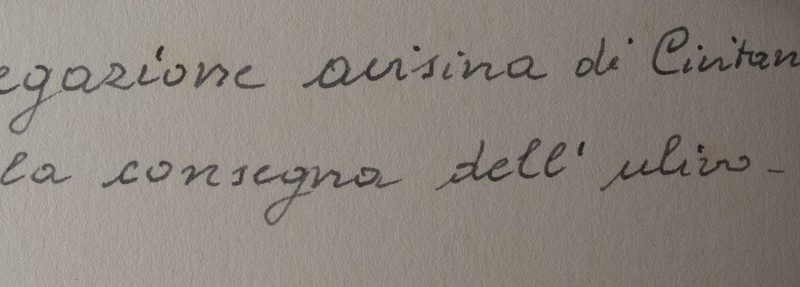 egazione avisina di Civitan
la consegna dell' ulivo -